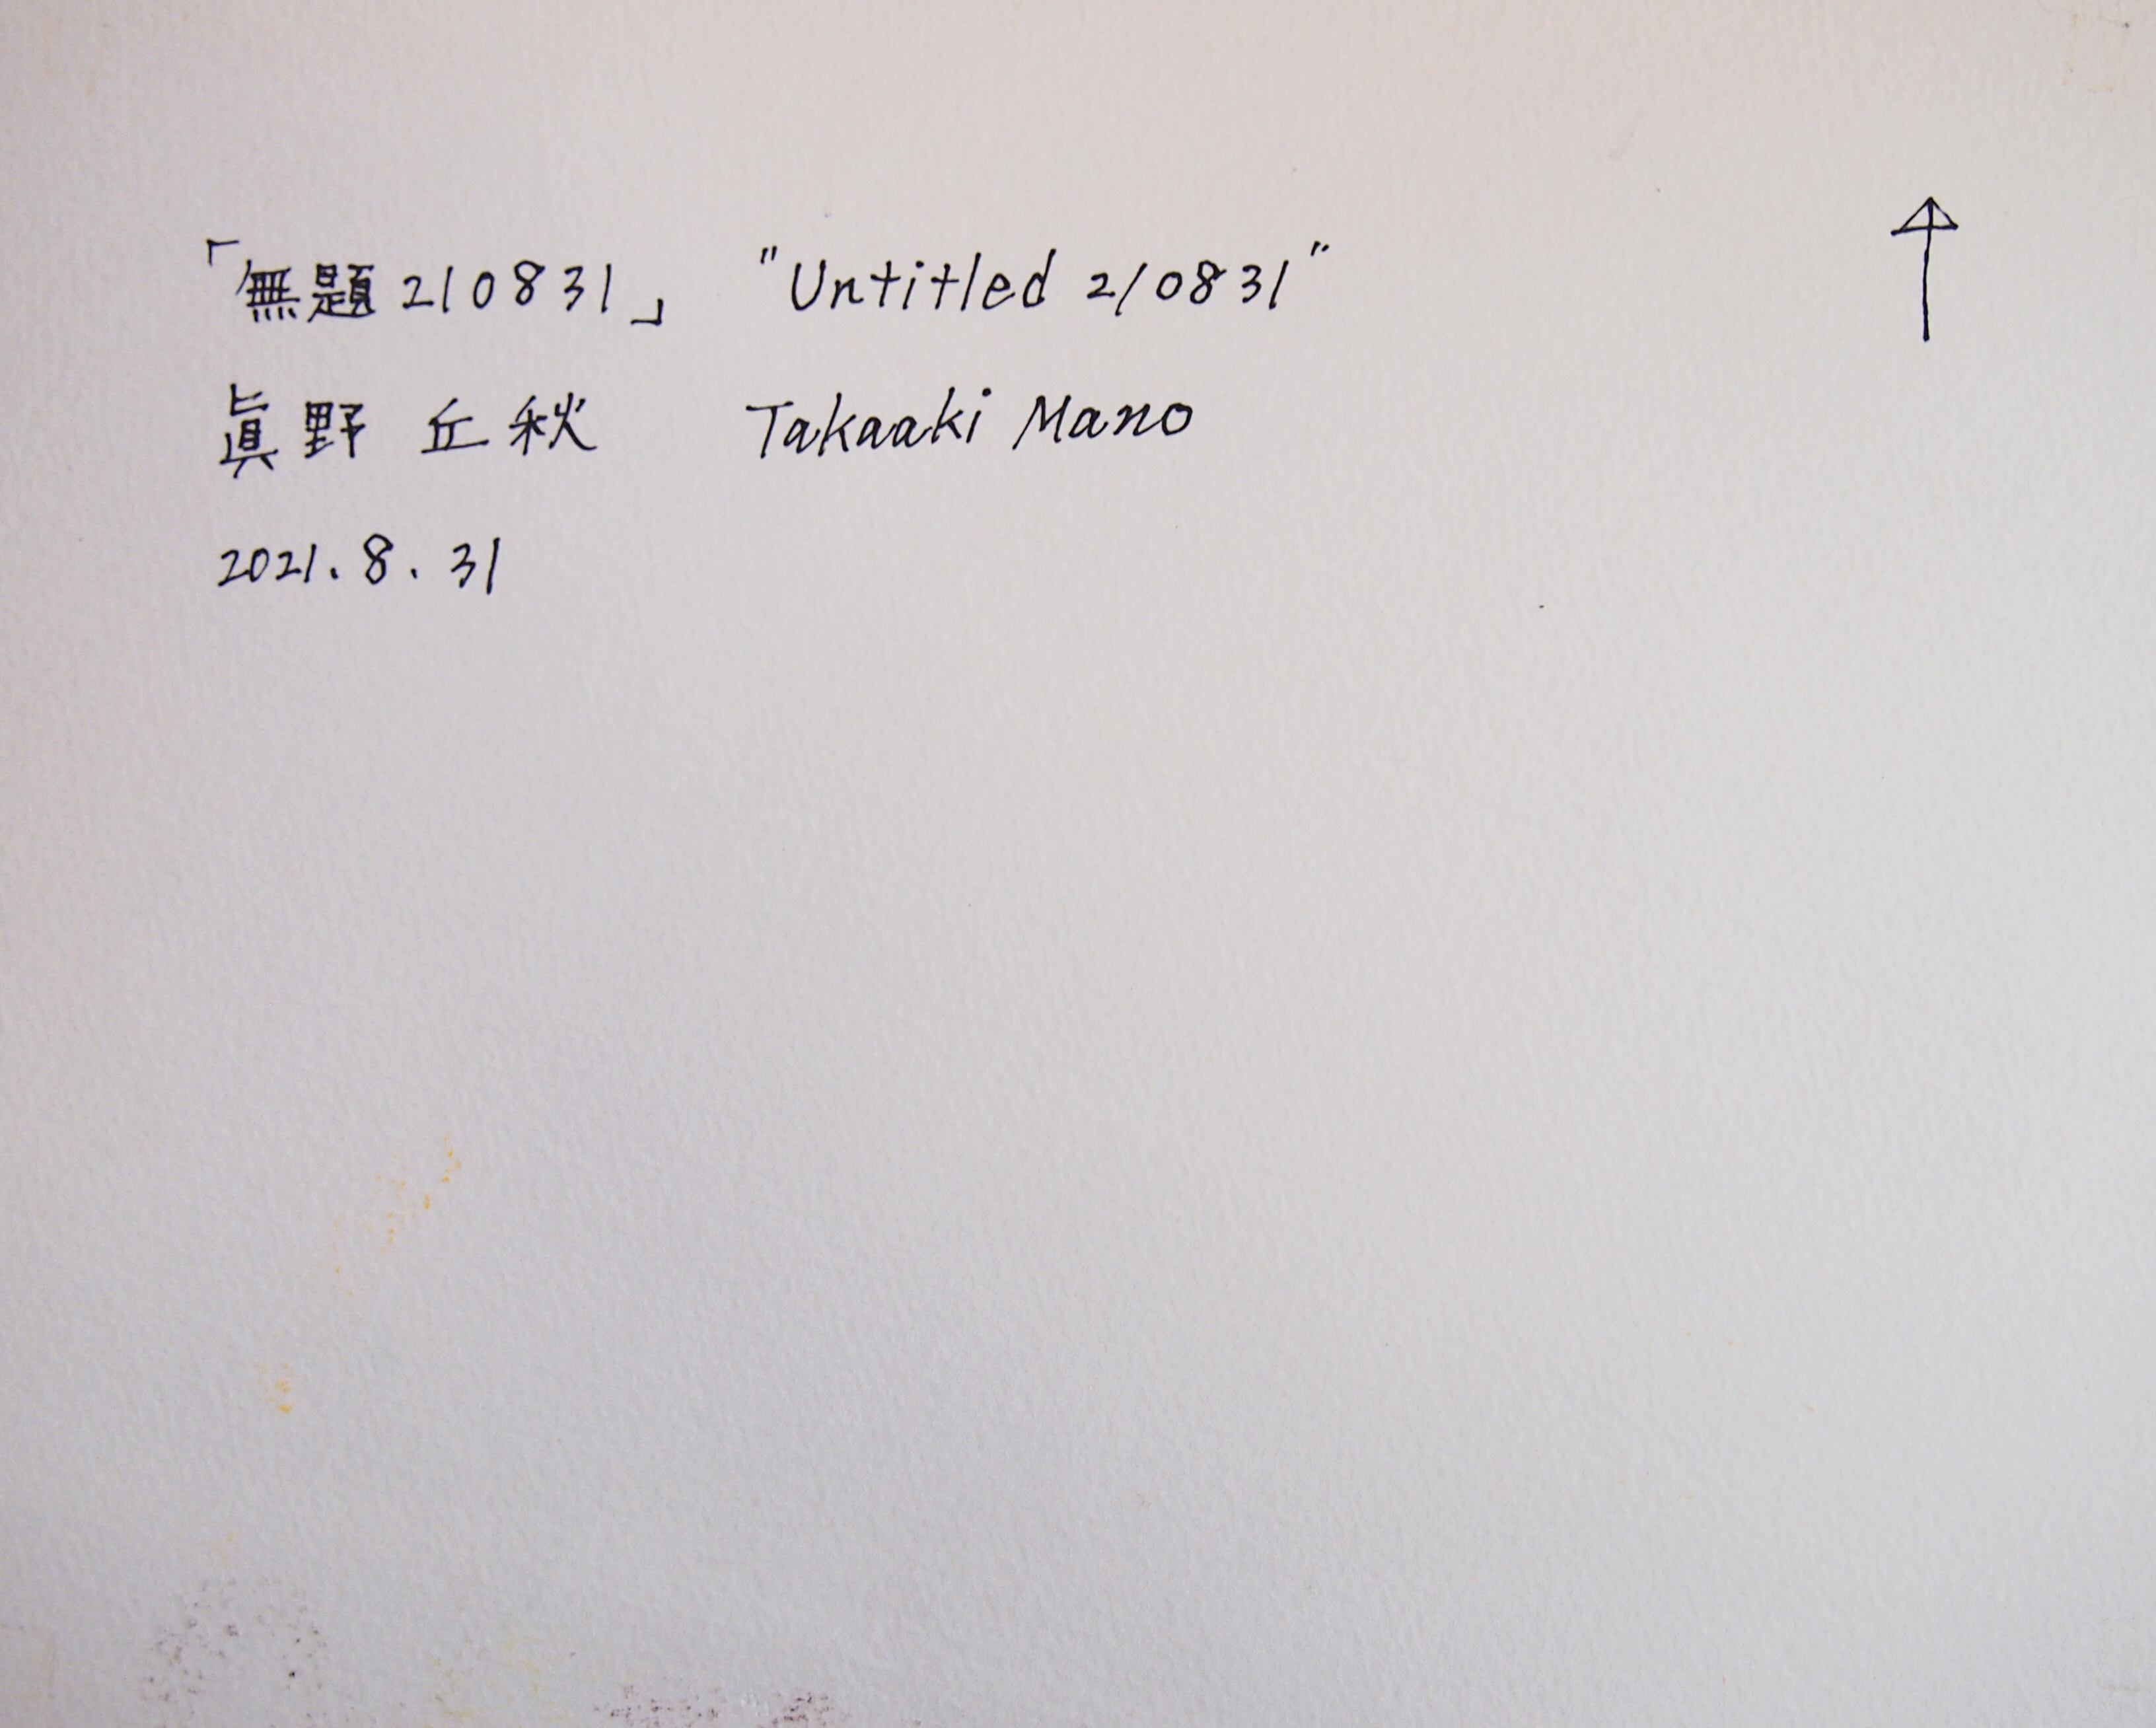 「無題210831」 "Untitled 210831"
眞野 丘秋 Takaaki Mano
2021.8.31